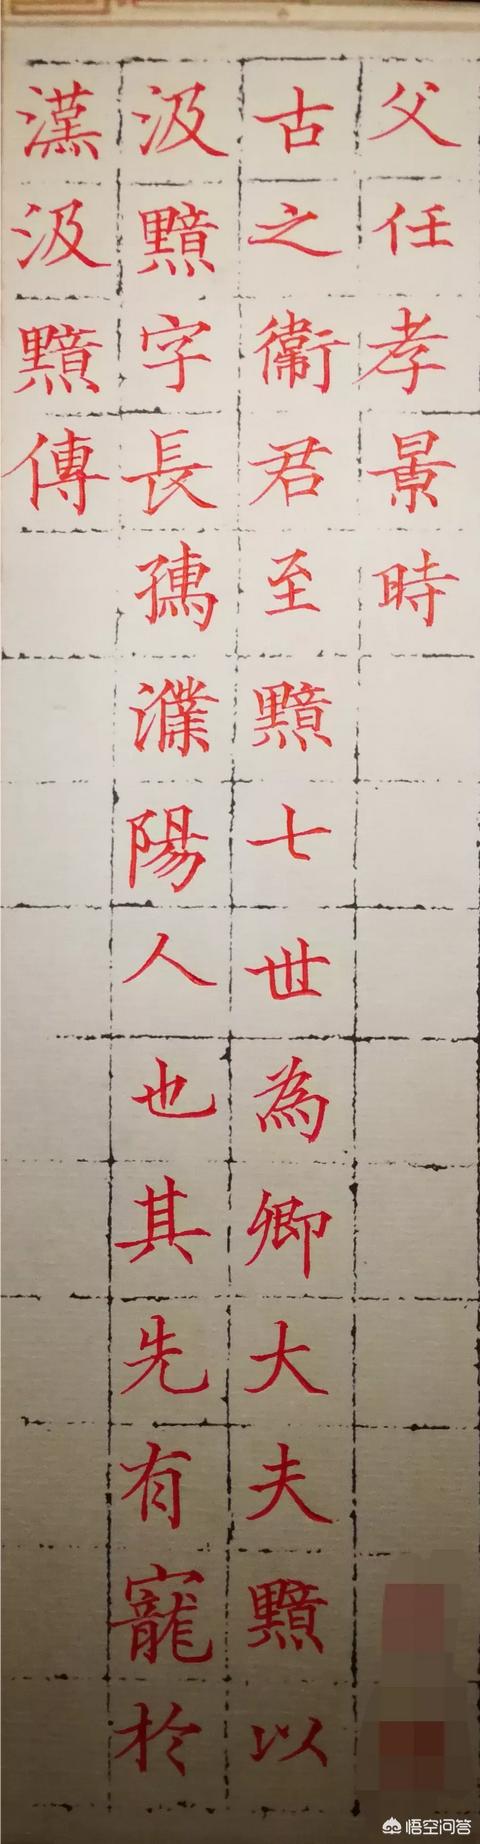 漢汲黯傳
汲黯字長孺濮陽人也其先有寵於
古之衞君至黯七世為卿大夫黯以
父任孝景時
悟空问答